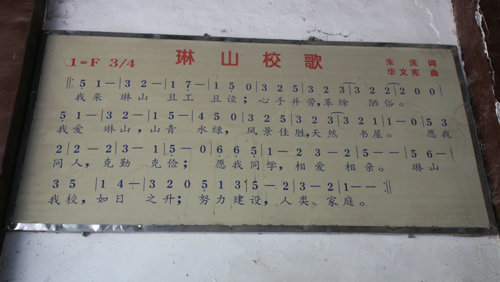 琳山校歌
1=F 3/4 朱洗 词
华文宪 曲
‖: 5 1 – | 3 2 – | 1 7 – | 1 5 0 | 3 2 5 | 3 2 3 | 3 2 3 | 3 2 2 | 2 0 0 |
我来 琳山 且工 且读; 心手并劳, 革除 陋俗。
5 1 – | 3 2 – | 1 5 – | 4 5 0 | 3 2 5 | 3 2 3 | 3 2 3 | 3 2 1 | 1 – 0 | 5 3
我爱 琳山, 山青 水绿, 风景佳胜, 天然 书屋。 愿我
2 | 2 – 2 | 3 – 1 | 5 – 0 | 6 6 5 | 1 – 2 | 3 – 2 | 5 – – | 5 6 – |
同人, 克勤 克俭; 愿我同学, 相爱 相亲。 琳山
3 5 | 1 4 – | 3 2 0 5 | 5 1 3 | 5 – 2 | 3 – 2 | 1 – – :‖
我校, 如日 之升; 努力建设, 人类、家庭。